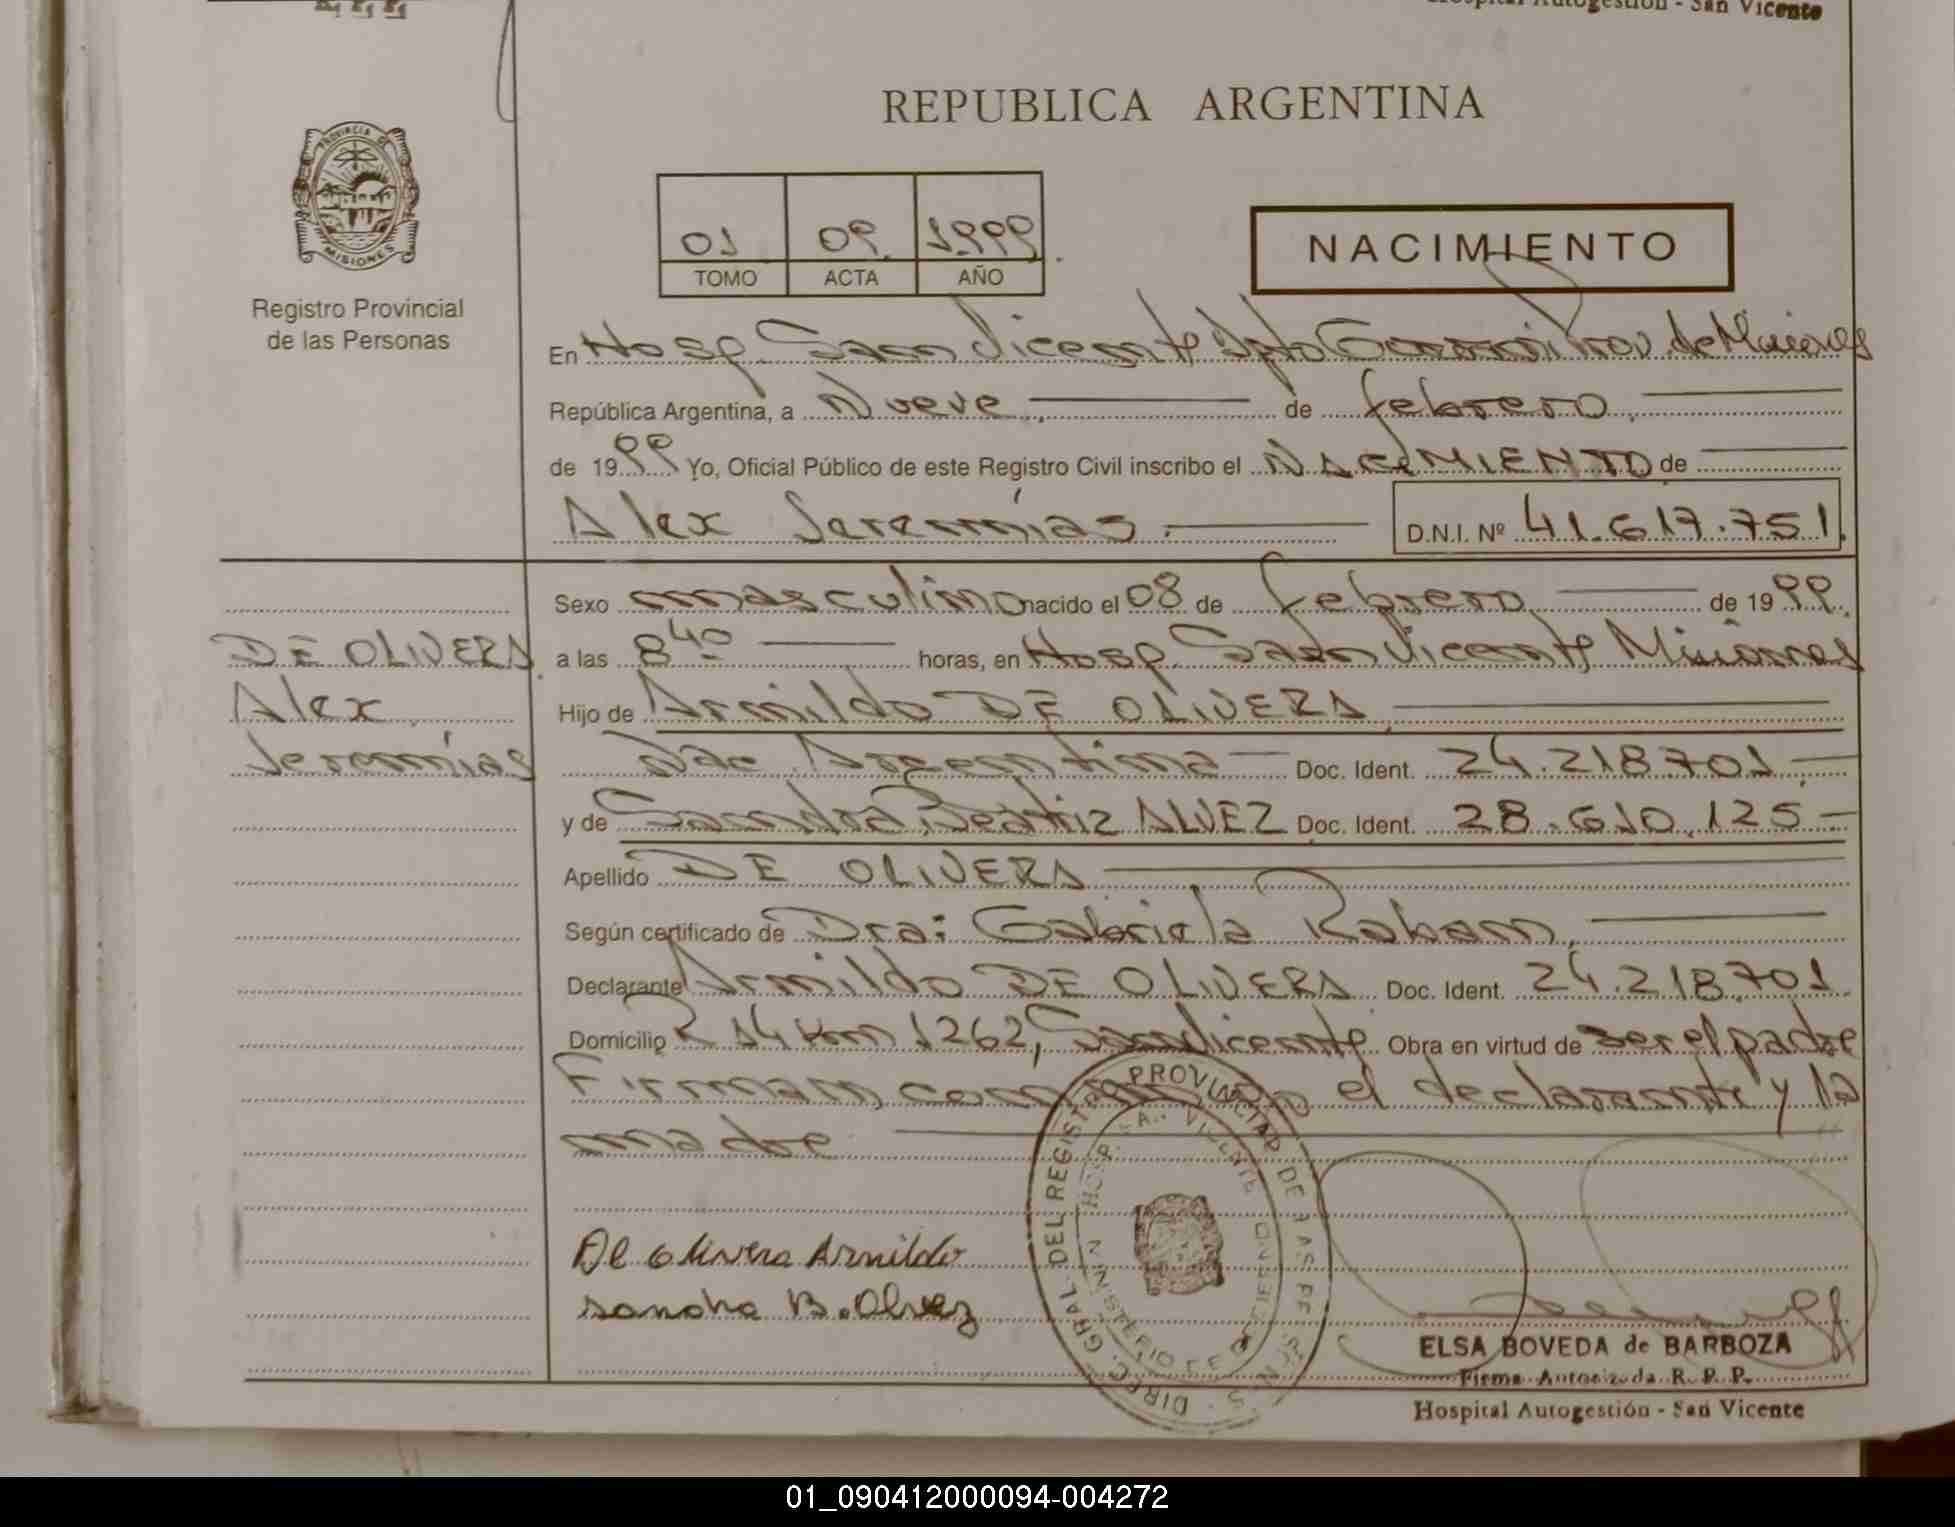 Hospital Autogestión - San Vicente
REPUBLICA ARGENTINA
PROVINCIA DE
MISIONES
Registro Provincial
de las Personas
01 09 1999
TOMO ACTA AÑO
NACIMIENTO
En Hosp. San Vicente Dpto Guaraní Prov. de Misiones
República Argentina, a Nueve de febrero
de 1999 Yo, Oficial Público de este Registro Civil inscribo el NACIMIENTO de
Alex Jeremías D.N.I. Nº 41.617.751
Sexo masculino nacido el 08 de febrero de 1999
a las 8 40 horas, en Hosp. San Vicente Misiones
Hijo de Arnildo DE OLIVERA
Nac Argentina Doc. Ident. 24.218.701
y de Sandra Beatriz ALVEZ Doc. Ident. 28.610.125
Apellido DE OLIVERA
Según certificado de Dra: Gabriela
Declarante Arnildo DE OLIVERA Doc. Ident. 24.218.701
Domicilio R 14 Km 1262, San Vicente Obra en virtud de ser el padre
Firman el declarante y la
madre
DE OLIVERA
Alex
Jeremías
De Olivera Arnildo
Sandra B. Alvez
DIREC. GRAL. DEL REGISTRO PROVINCIAL DE LAS PERSONAS
HOSP. SAN VICENTE
ELSA BOVEDA de BARBOZA
Firma Autorizada R. P. P.
Hospital Autogestión - San Vicente
01_090412000094-004272